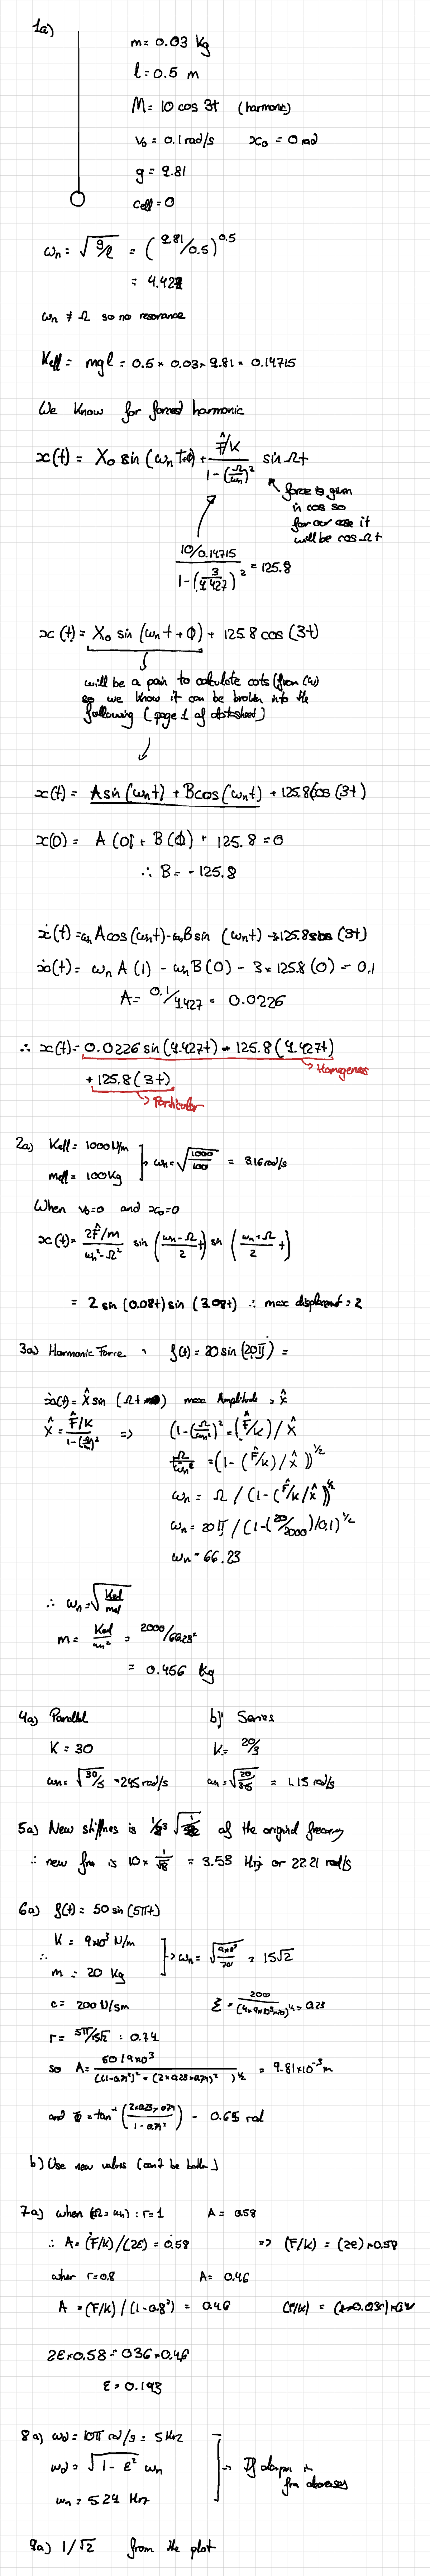 1a)
m = 0.03 Kg
l = 0.5 m
M = 10 cos 3t (harmonic)
v₀ = 0.1 rad/s x₀ = 0 rad
g = 9.81
Ceff = 0
ωn = √(g/l) = (9.81/0.5)^0.5
= 4.427
ωn ≠ Ω so no resonance
Keff = mgl = 0.5 × 0.03 × 9.81 = 0.14715
We Know for forced harmonic
x(t) = X₀ sin (ωn t+ϕ) + (F̂/K)/(1-(Ω/ωn)²) sin Ωt
force is given
in cos so
for our case it
will be cos Ωt
(10/0.14715)/(1-(3/4.427)²) = 125.8
x(t) = X₀ sin (ωn t + ϕ) + 125.8 cos (3t)
will be a pain to calculate
so we know it can be broken into the
following (page 1 of datasheet)
x(t) = A sin (ωn t) + B cos (ωn t) + 125.8 cos (3t)
x(0) = A (0) + B (1) + 125.8 = 0
∴ B = - 125.8
ẋ(t) = ωn A cos (ωn t) - ωn B sin (ωn t) - 3×125.8 sin (3t)
ẋ(t) = ωn A (1) - ωn B (0) - 3 × 125.8 (0) = 0.1
A = 0.1/4.427 = 0.0226
∴ x(t) = 0.0226 sin (4.427t) - 125.8 (4.427t)
Homogenous
+ 125.8 (3t)
Particular
2a) Keff = 1000 N/m
meff = 100 Kg
ωn = √(1000/100) = 3.16 rad/s
When v₀=0 and x₀=0
x(t) = (2F̂/m)/(ωn² - Ω²) sin ((ωn - Ω)/2 t) sin ((ωn + Ω)/2 t)
= 2 sin (0.08t) sin (3.08t) ∴ max displacement = 2
3a) Harmonic Force f(t) = 20 sin (20π) =
x(t) = X̂ sin (Ωt) max Amplitude = X̂
X̂ = (F̂/K)/(1-(Ω/ωn)²) => (1-(Ω/ωn)²) = (F̂/K) / X̂
Ω/ωn = (1 - (F̂/K) / X̂)^1/2
ωn = Ω / (1 - (F̂/K / X̂))^1/2
ωn = 20π / (1-(20/2000)/0.1)^1/2
ωn = 66.23
∴ ωn = √(Keff/meff)
m = Keff/ωn² = 2000/66.23²
= 0.456 Kg
4a) Parallel b) Series
K = 30 K = 20/3
ωn = √(30/5) = 2.45 rad/s ωn = √(20/3×5) = 1.15 rad/s
5a) New stiffness is of the original frequency
∴ new frq is 10 × 1/√8 = 3.53 Hz or 22.21 rad/s
6a) f(t) = 50 sin (5πt)
∴ K = 9×10³ N/m
m = 20 Kg
ωn = √(9×10³/20) = 15√2
c = 200 N/sm ξ = 200/(4×9×10³×20)^½ = 0.23
r = 5π/15√2 = 0.74
so A = (50/9×10³)/((1-0.74²)² + (2×0.23×0.74)²)^½ = 9.81×10⁻³ m
and ϕ = tan⁻¹ ((2×0.23×0.74)/(1-0.74²)) = 0.65 rad
b) Use new values (can't be bothered)
7a) when (Ω = ωn) : r = 1 A = 0.58
∴ A = (F/K) / (2ξ) = 0.58 => (F/K) = (2ξ) × 0.58
when r = 0.8 A = 0.46
A = (F/K) / (1-0.8²) = 0.46
2ξ × 0.58 = 0.36 × 0.46
ξ = 0.143
8a) ωd = 10π rad/s = 5 Hz
ωd = √(1 - ξ²) ωn
ωn = 5.24 Hz
9a) 1/√2 from the plot